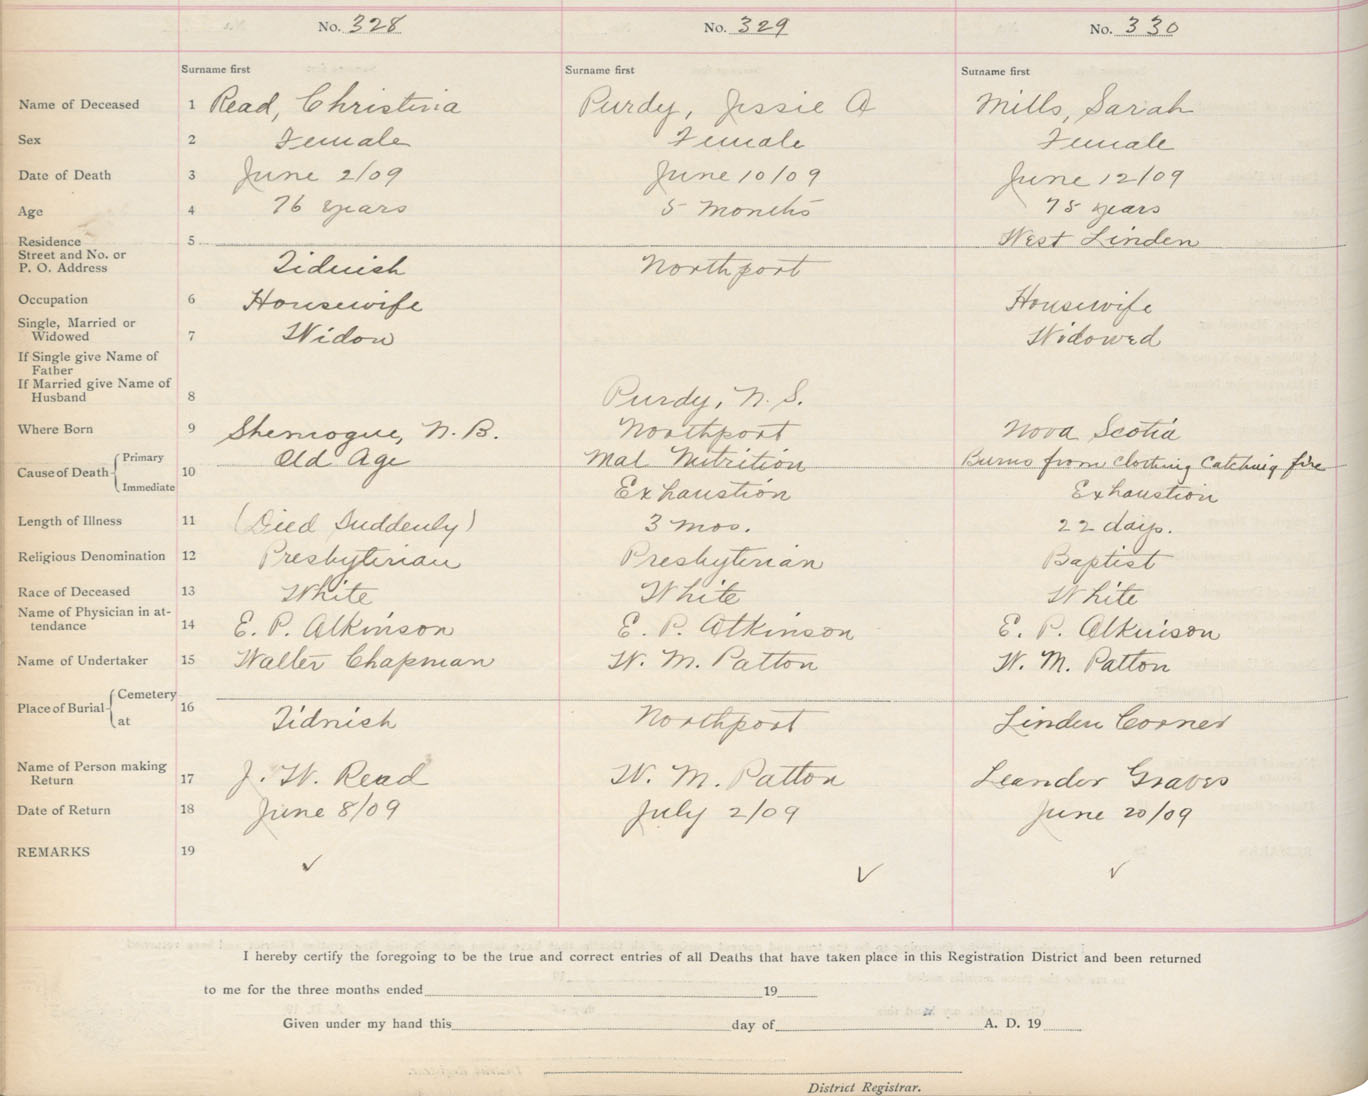 No. 328 No. 329 No. 330
Surname first Surname first Surname first
Name of Deceased 1 Read, Christina Purdy, Jessie A Mills, Sarah
Sex 2 Female Female Female
Date of Death 3 June 2/09 June 10/09 June 12/09
Age 4 76 years 5 months 75 years
Residence 5 West Linden
Street and No. or
P. O. Address Tidnish Northport
Occupation 6 Housewife Housewife
Single, Married or
Widowed 7 Widow Widowed
If Single give Name of
Father
If Married give Name of
Husband 8 Purdy, N. S.
Where Born 9 Shemogue, N. B. Northport Nova Scotia
Cause of Death Primary 10 Old Age Mal Nutrition Burns from clothing catching fire
Immediate Exhaustion Exhaustion
Length of Illness 11 (Died Suddenly) 3 mos. 22 days.
Religious Denomination 12 Presbyterian Presbyterian Baptist
Race of Deceased 13 White White White
Name of Physician in at-
tendance 14 E. P. Atkinson E. P. Atkinson E. P. Atkinson
Name of Undertaker 15 Walter Chapman W. M. Patton W. M. Patton
Place of Burial Cemetery 16
at Tidnish Northport Linden Corner
Name of Person making
Return 17 J. W. Read W. M. Patton Leander Graves
Date of Return 18 June 8/09 July 2/09 June 20/09
REMARKS 19 ✓ ✓ ✓
I hereby certify the foregoing to be the true and correct entries of all Deaths that have taken place in this Registration District and been returned
to me for the three months ended 19
Given under my hand this day of A. D. 19
District Registrar.